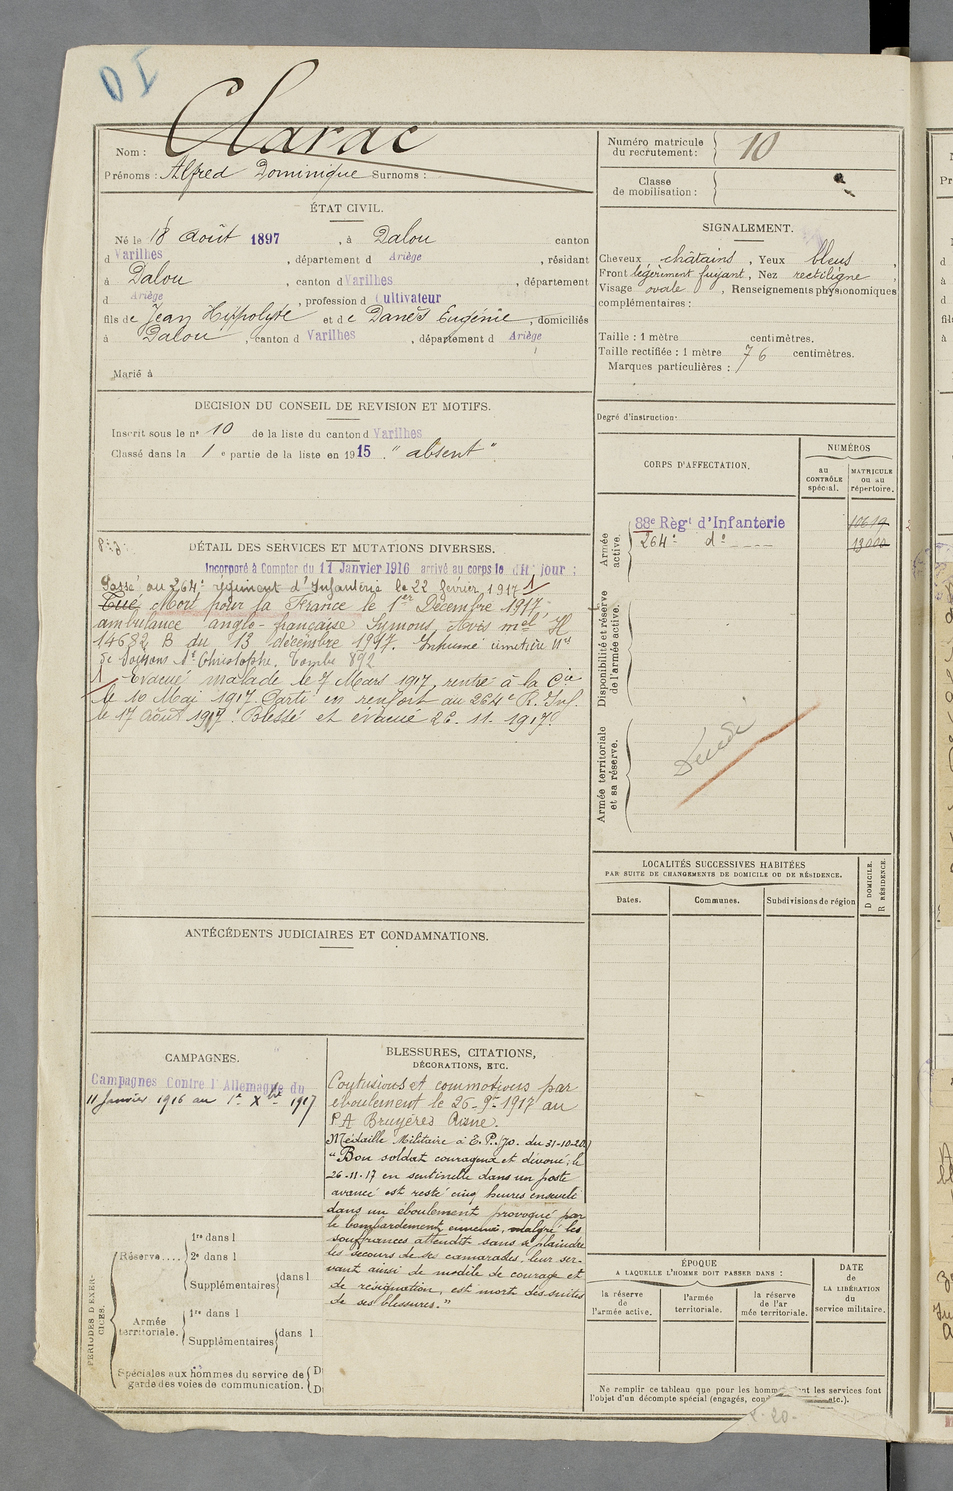 DI
Nom : Clarac
Prénoms : Alfred Dominique Surnoms :
ÉTAT CIVIL.
Né le 18 Août 1897, à Dalou canton
d Varilhes, département d Ariège, résidant
à Dalou, canton d Varilhes, département
d Ariège, profession d Cultivateur
fils de Jean Hyppolyte et de Danès Eugénie, domiciliés
à Dalou, canton d Varilhes, département d Ariège
Marié à
DECISION DU CONSEIL DE REVISION ET MOTIFS.
Inscrit sous le nº 10 de la liste du canton d Varilhes
Classé dans la 1 e partie de la liste en 1915. "absent"
DÉTAIL DES SERVICES ET MUTATIONS DIVERSES.
Incorporé à Compter du 11 Janvier 1916 arrivé au corps le dit jour ;
Passé au 264e régiment d'Infanterie le 22 février 1917 1/
Tué Mort pour la France le 1er Décembre 1917,
ambulance anglo-française Symons, Avis mel H
14682 B du 13 décembre 1917. Inhumé cimetière
de Soissons St Christophe, Tombe 892
1/ Evacué malade le 7 Mars 1917, rentré à la Cie
le 10 Mai 1917. Parti en renfort au 264e R. Inf.
le 17 Août 1917. Blessé et évacué 26-11-1917.
ANTÉCÉDENTS JUDICIAIRES ET CONDAMNATIONS.
CAMPAGNES.
Campagnes Contre l'Allemagne du
11 Janvier 1916 au 1er Xbre 1917
BLESSURES, CITATIONS,
DÉCORATIONS, ETC.
Contusions et commotions par
éboulement le 26-9bre-1917 au
P A Bruyères Aisne.
Médaille Militaire à E. P. Jo. du 31-10-20
"Bon soldat courageux et dévoué ; le
26-11-17 en sentinelle dans un poste
avancé est resté cinq heures enseveli
dans un éboulement provoqué par
le bombardement ennemi, malgré les
souffrances attendit sans se plaindre
les secours de ses camarades, leur ser-
vant ainsi de modèle de courage et
de résignation, est mort des suites
de ses blessures."
PÉRIODES D'EXER-
CICES.
Réserve....
1re dans l
2e dans l
Supplémentaires dans l
Armée
territoriale.
1re dans l
Supplémentaires dans l
Spéciales aux hommes du service de
garde des voies de communication.
Numéro matricule
du recrutement : 10
Classe
de mobilisation :
SIGNALEMENT.
Cheveux châtains, Yeux bleus,
Front légèrement fuyant, Nez rectiligne,
Visage ovale, Renseignements physionomiques
complémentaires :
Taille : 1 mètre centimètres.
Taille rectifiée : 1 mètre 76 centimètres.
Marques particulières :
Degré d'instruction.
CORPS D'AFFECTATION.
NUMÉROS
au
CONTRÔLE
spécial.
MATRICULE
ou au
répertoire.
Armée
active.
88e Règt d'Infanterie
264e do
Disponibilité et réserve
de l'armée active.
Armée territoriale
et sa réserve.
LOCALITÉS SUCCESSIVES HABITÉES
PAR SUITE DE CHANGEMENTS DE DOMICILE OU DE RÉSIDENCE.
Dates.
Communes.
Subdivisions de région
D DOMICILE.
R RÉSIDENCE.
ÉPOQUE
A LAQUELLE L'HOMME DOIT PASSER DANS :
la réserve
de
l'armée active.
l'armée
territoriale.
la réserve
de l'ar
mée territoriale.
DATE
de
LA LIBÉRATION
du
service militaire.
Ne remplir ce tableau que pour les hommes dont les services font
l'objet d'un décompte spécial (engagés, etc.).